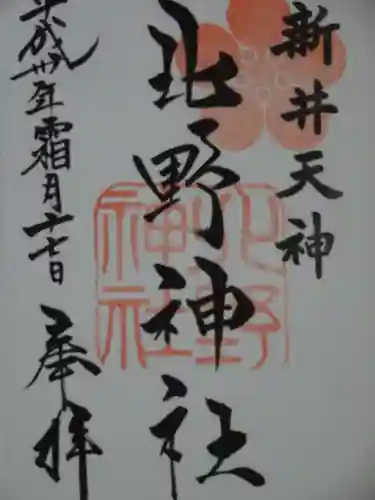 新井天神
北野神社
平成卅年霜月十七日
奉拝
北野
神社